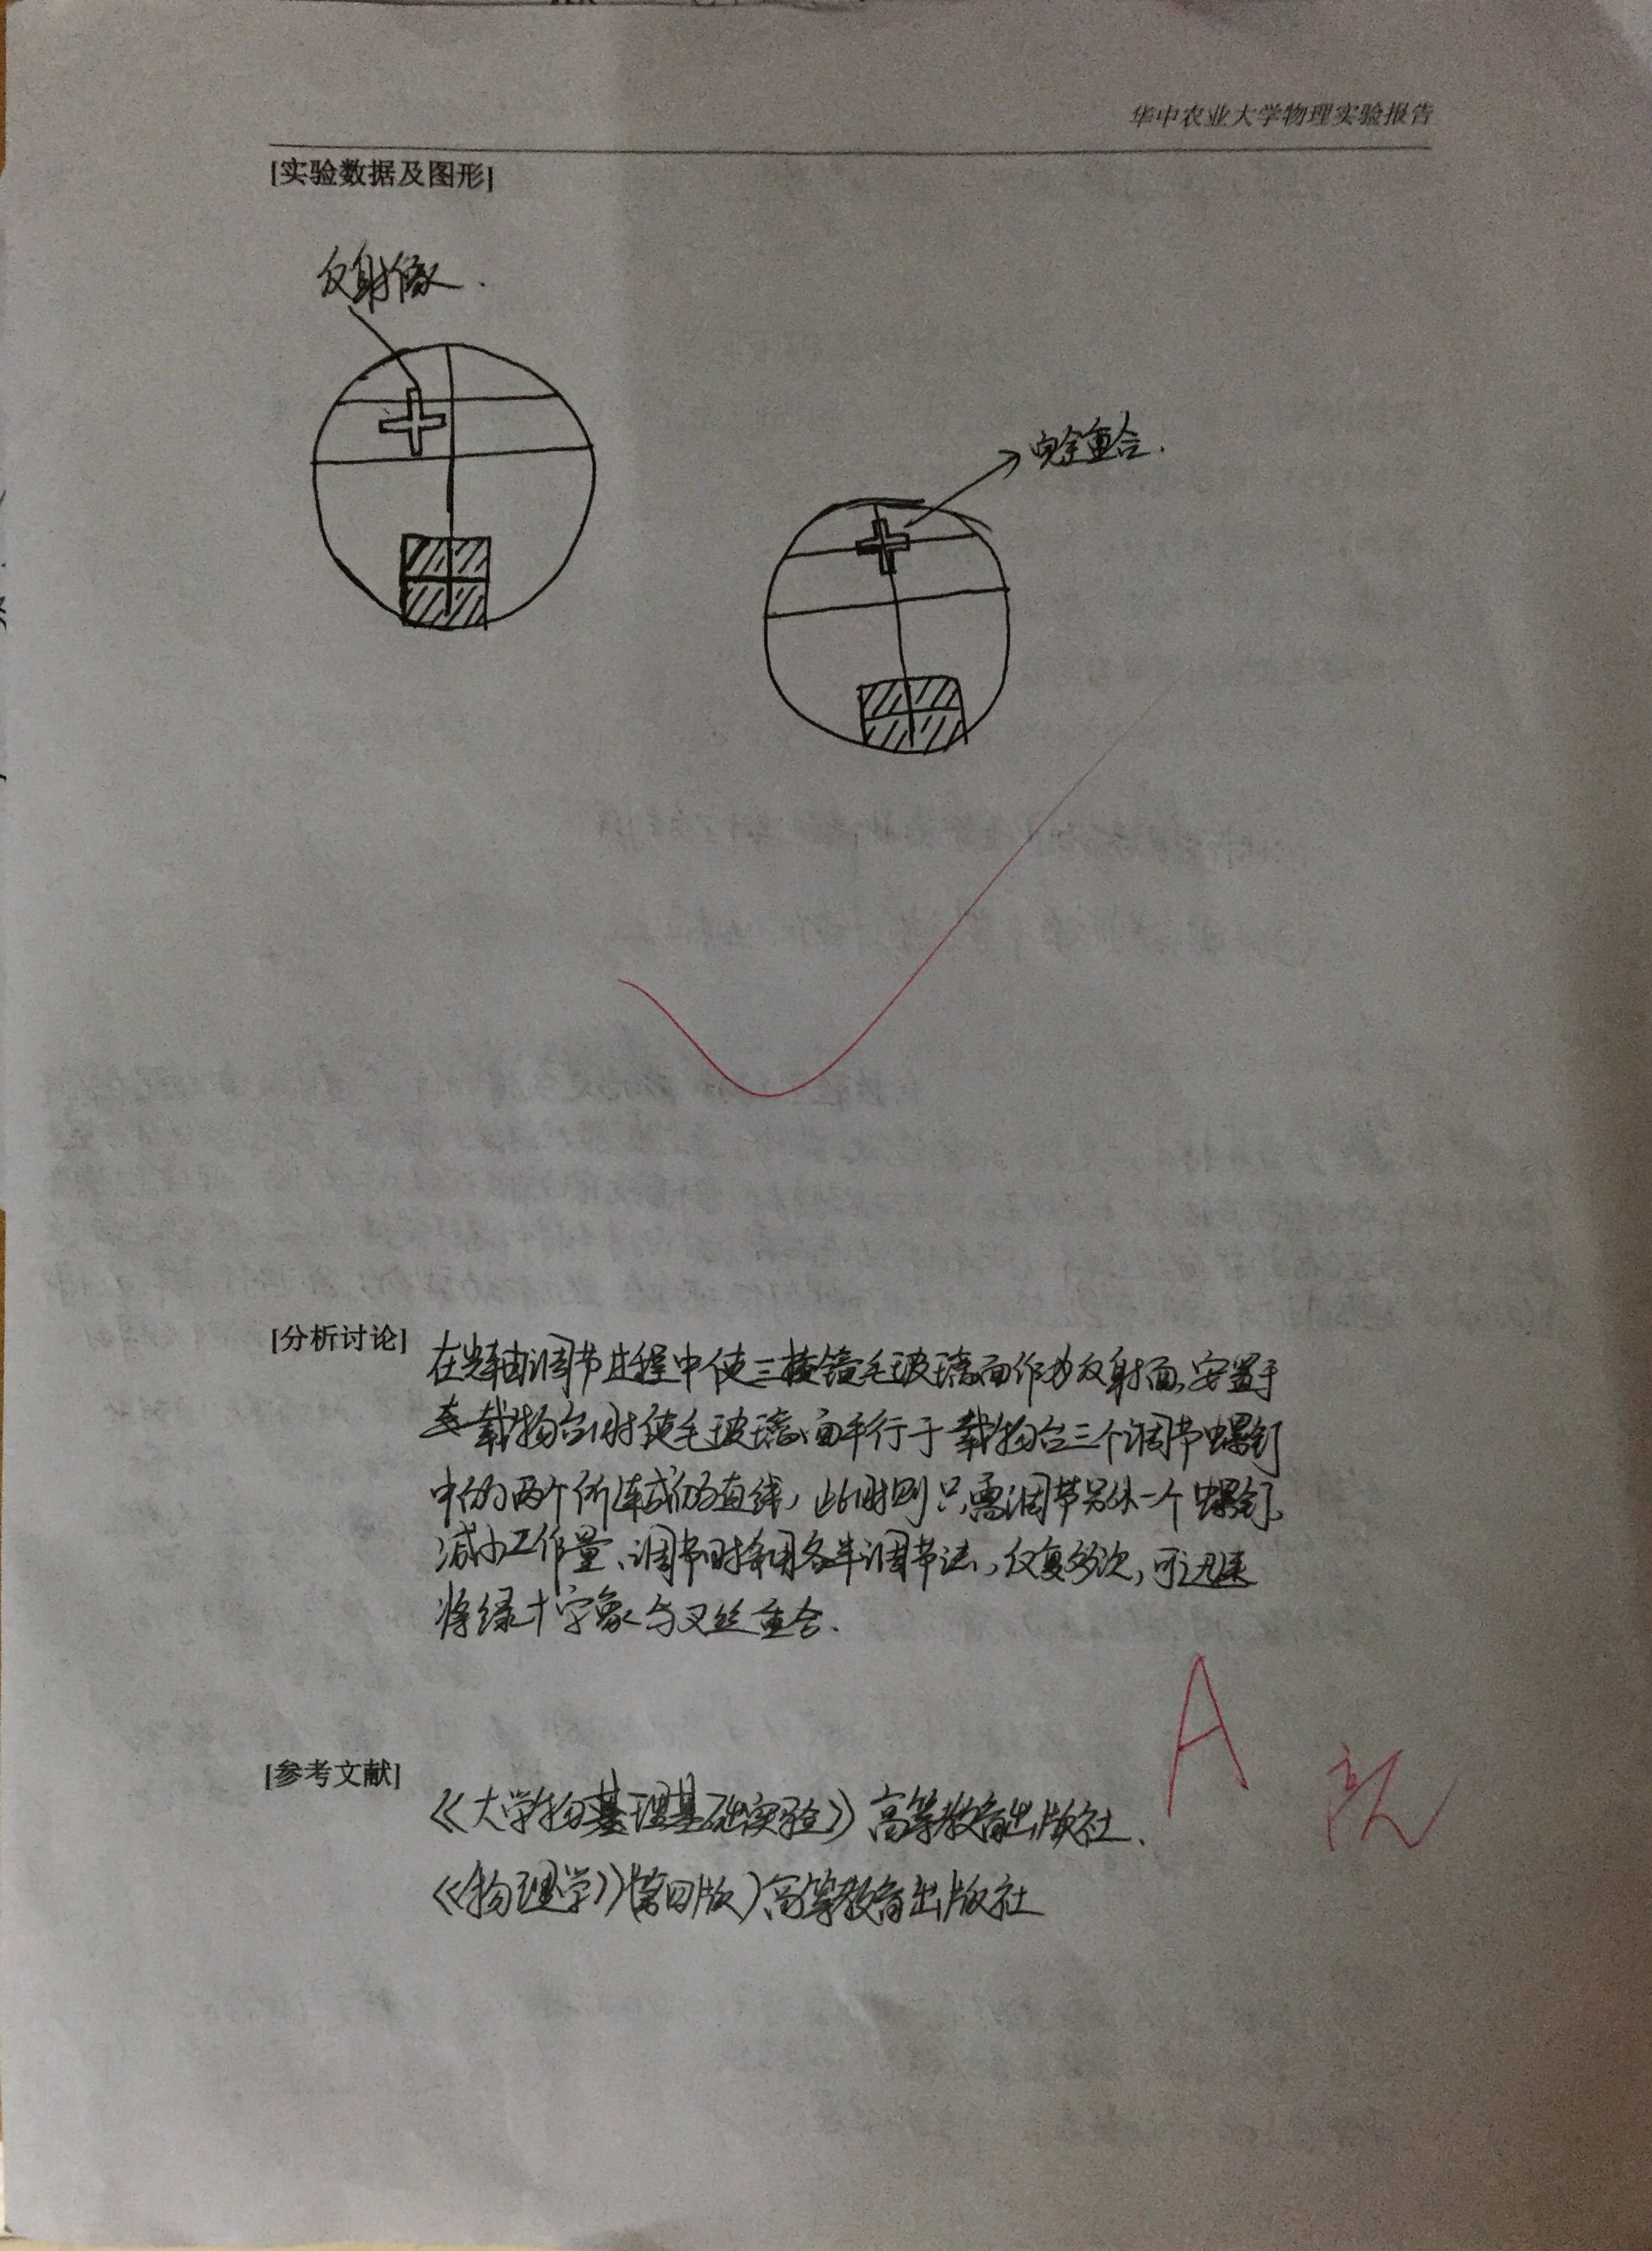 华中农业大学物理实验报告
[实验数据及图形]
反射像.
完全重合.
[分析讨论]
在光轴调节过程中使三棱镜毛玻璃面作为反射面,安置于
载物台时使毛玻璃面平行于载物台三个调节螺钉
中的两个所连成的直线,此时则只需调节另外一个螺钉,
减小工作量、调节时采用各半调节法,反复多次,可迅速
将绿十字象与叉丝重合.
[参考文献]
《大学物理基础实验》高等教育出版社、
《物理学》(第四版)高等教育出版社
A